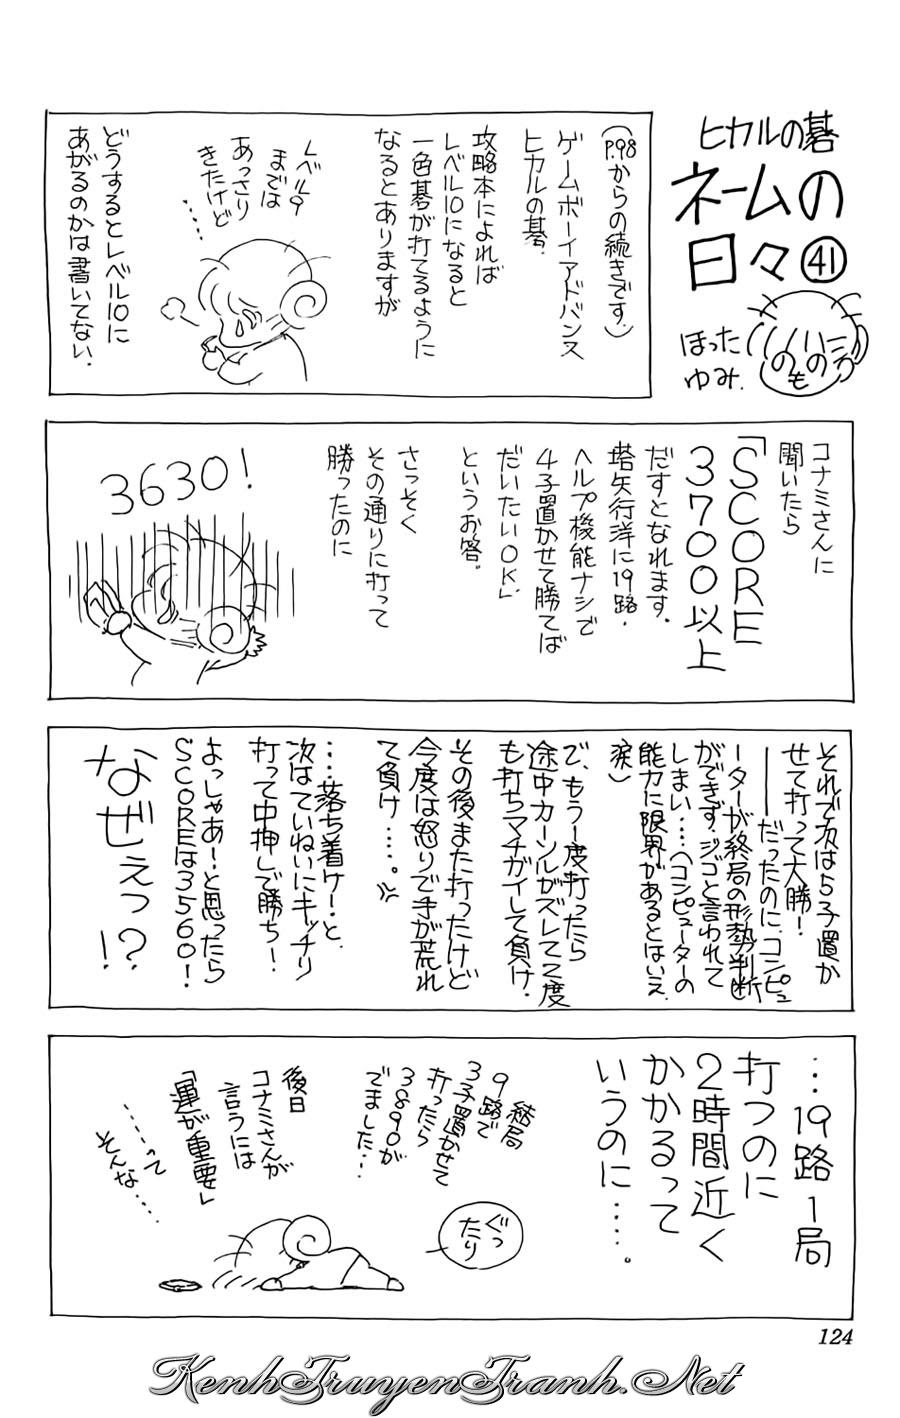 ヒカルの碁
ネームの
日々㊶
ほった
ゆみ.
へのへのもへじ
(P.98からの続きです.)
ゲームボーイアドバンス
ヒカルの碁.
攻略本によれば
レベル10になると
一色碁が打てるように
なるとありますが
レベル9
までは
あっさり
きたけど
……
どうするとレベル10に
あがるのかは書いてない.
コナミさんに
聞いたら
「SCORE
3700以上
だすとなれます.
塔矢行洋に19路.
ヘルプ機能ナシで
4子置かせて勝てば
だいたいOK」
というお答.
さっそく
その通りに打って
勝ったのに
3630!
それで次は5子置か
せて打って大勝!
――だったのに、コンピュ
ーターが終局の形勢判断
ができず.ジゴと言われて
しまい……(コンピューターの
能力に限界があるとはいえ
涙)
で、もう1度打ったら
途中カーソルがズレて2度
も打ちマチガイして負け.
その後また打ったけど
今度は怒りで手が荒れ
て負け……。
……落ち着け!と、
次はていねいにキッチリ
打って中押しで勝ち!
よっしゃあ!と思ったら
SCOREは3560!
なぜぇっ!?
…19路1局
打つのに
2時間近く
かかるって
いうのに……。
ぐっ
たり
結局
9路で
3子置かせて
打ったら
3890が
でました…
後日
コナミさんが
言うには
「運が重要」
……って
そんな……
124
KenhTruyenTranh.Net